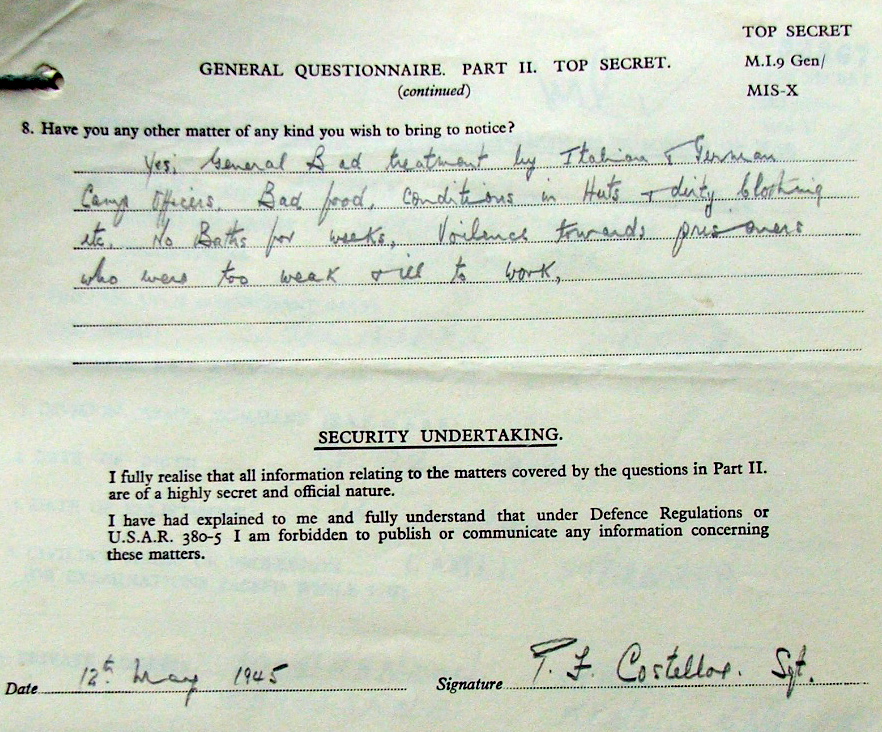 TOP SECRET
GENERAL QUESTIONNAIRE. PART II. TOP SECRET.
M.I.9 Gen/
(continued)
MIS-X
8. Have you any other matter of any kind you wish to bring to notice?
Yes, General Bad treatment by Italian & German
Camp Officers. Bad food, conditions in Huts & dirty clothing
etc. No Baths for weeks, Voilence towards prisoners
who were too weak & ill to work,
SECURITY UNDERTAKING.
I fully realise that all information relating to the matters covered by the questions in Part II.
are of a highly secret and official nature.
I have had explained to me and fully understand that under Defence Regulations or
U.S.A.R. 380-5 I am forbidden to publish or communicate any information concerning
these matters.
Date 12th May 1945 Signature T. F. Costelloe. Sgt.